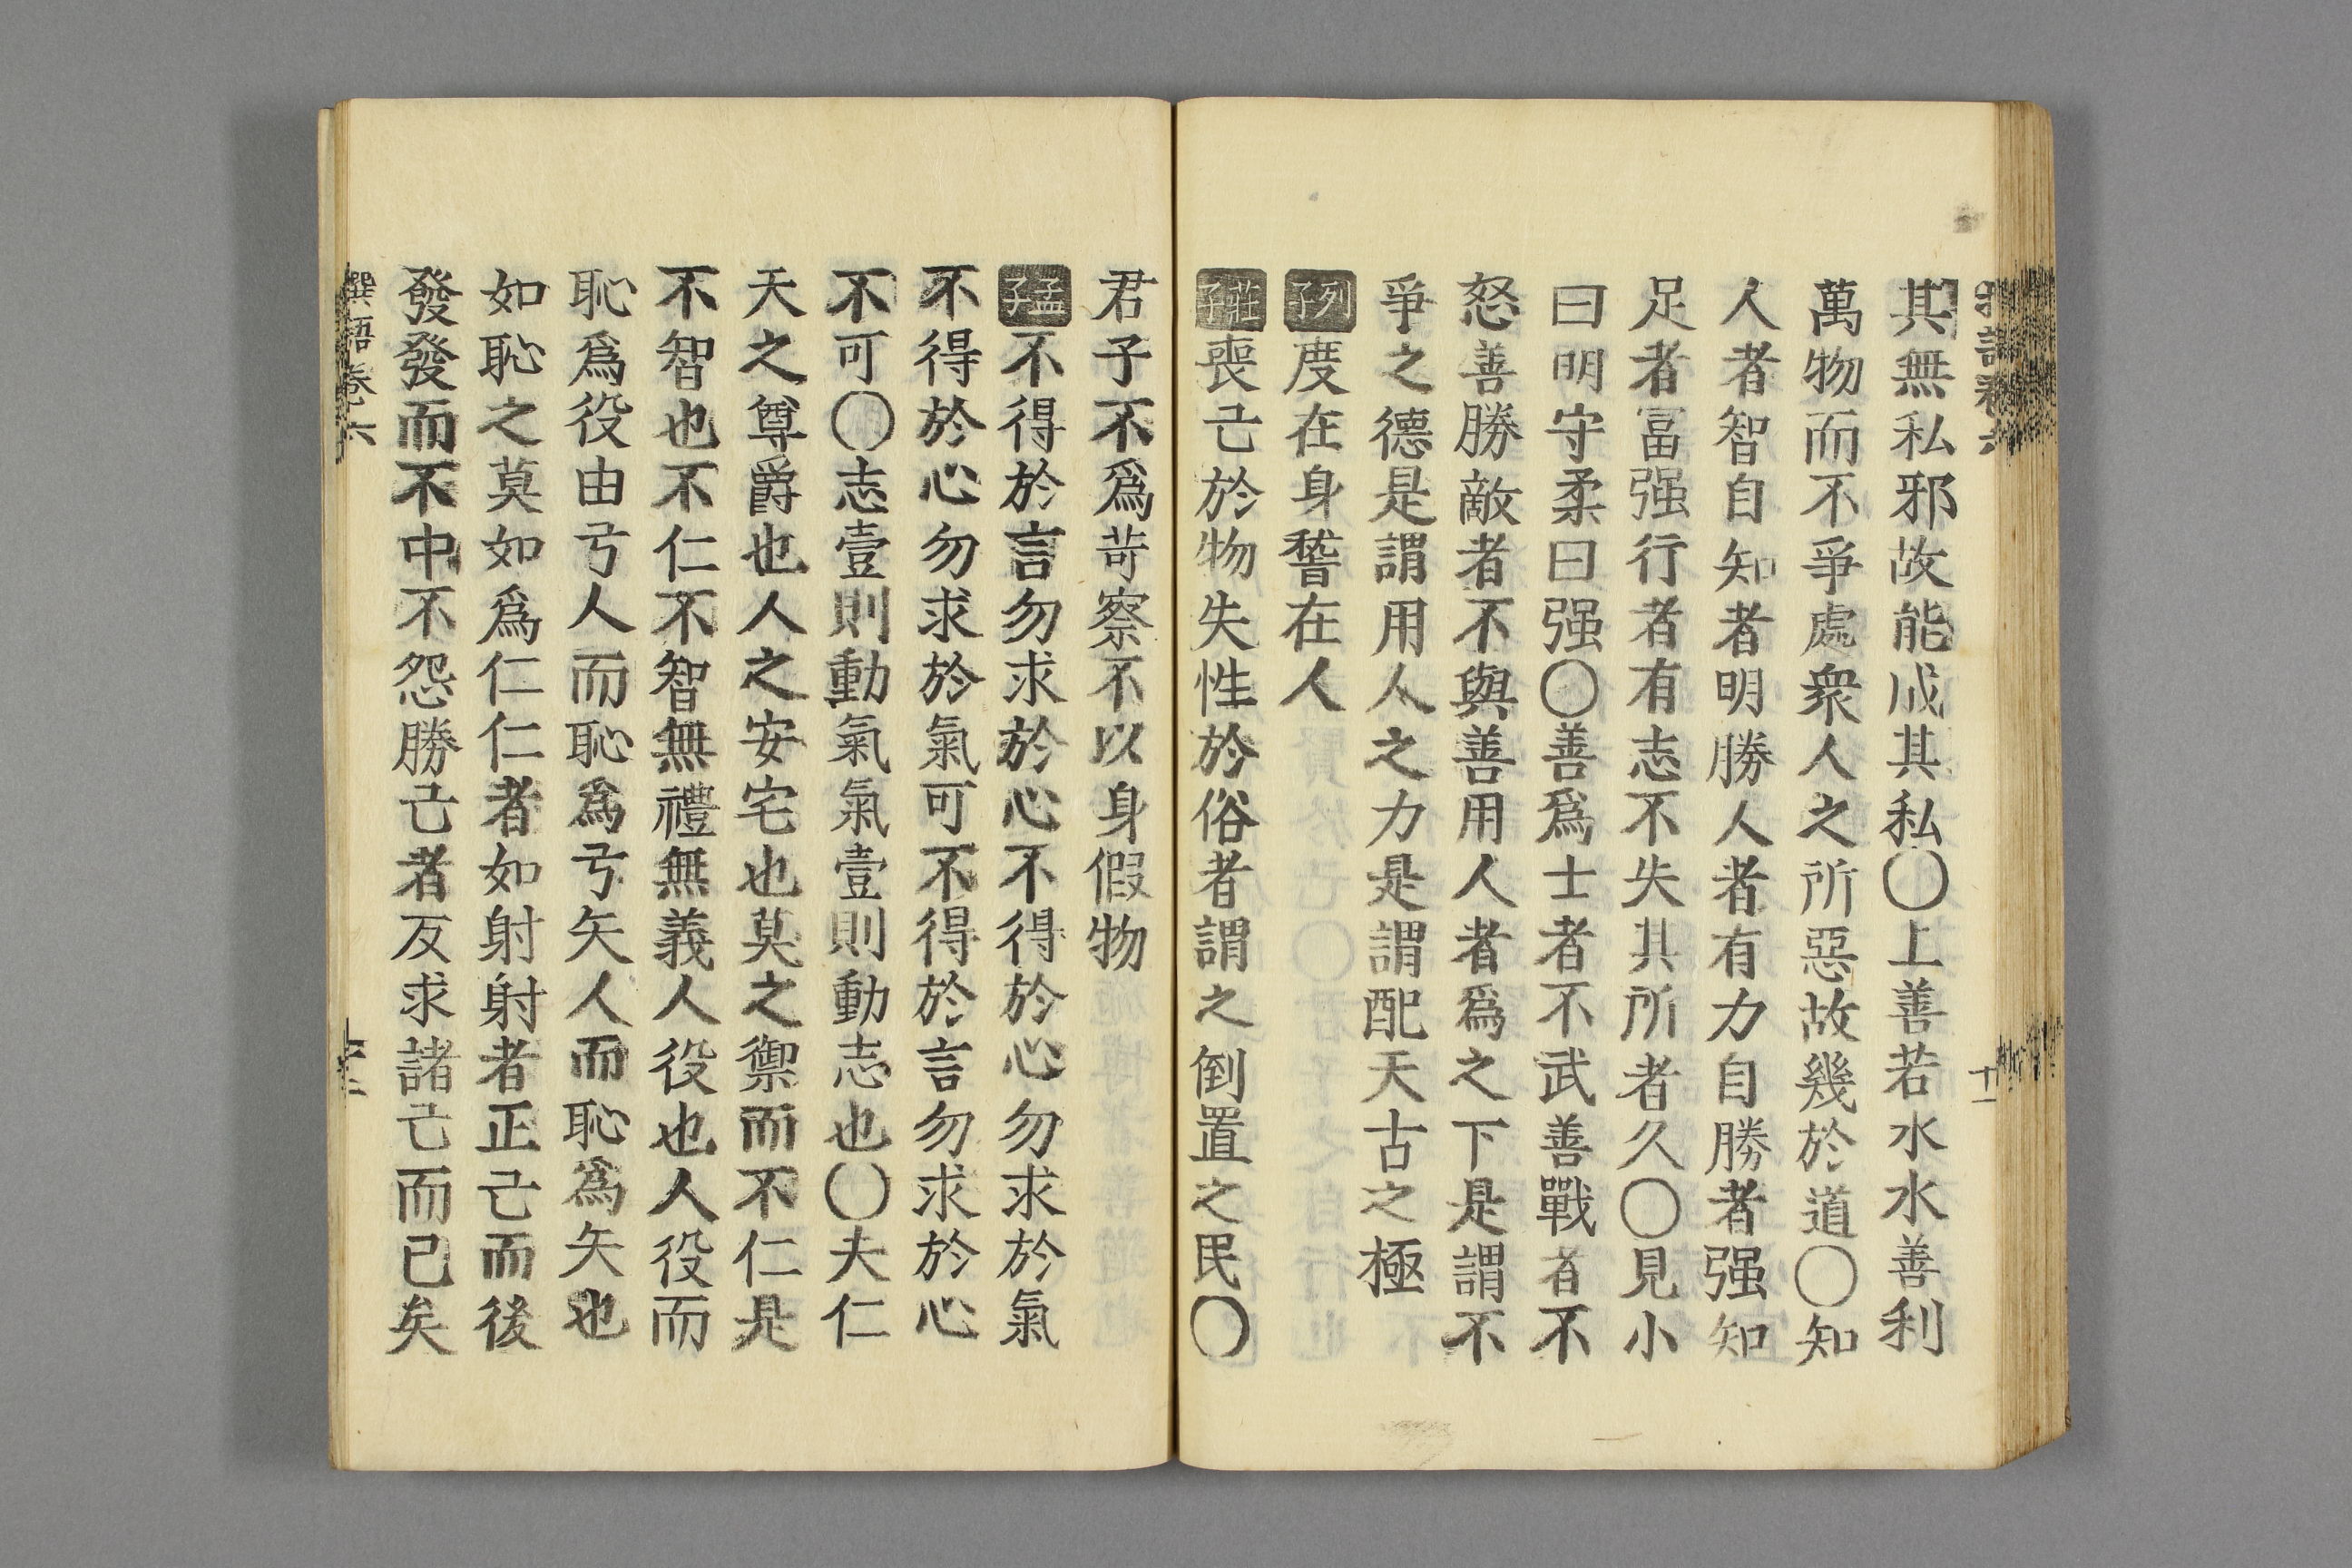 其無私邪故能成其私〇上善若水水善利
萬物而不爭處衆人之所惡故幾於道〇知
人者智自知者明勝人者有力自勝者强知
足者富强行者有志不失其所者久〇見小
曰明守柔曰强〇善爲士者不武善戰者不
怒善勝敵者不與善用人者爲之下是謂不
爭之德是謂用人之力是謂配天古之極
列子度在身稽在人
莊子喪己於物失性於俗者謂之倒置之民〇
君子不爲苛察不以身假物
孟子不得於言勿求於心不得於心勿求於氣
不得於心勿求於氣可不得於言勿求於心
不可〇志壹則動氣氣壹則動志也〇夫仁
天之尊爵也人之安宅也莫之禦而不仁是
不智也不仁不智無禮無義人役也人役而
恥爲役由弓人而恥爲弓矢人而恥爲矢也
如恥之莫如爲仁仁者如射射者正己而後
發發而不中不怨勝己者反求諸己而已矣
撰語卷六